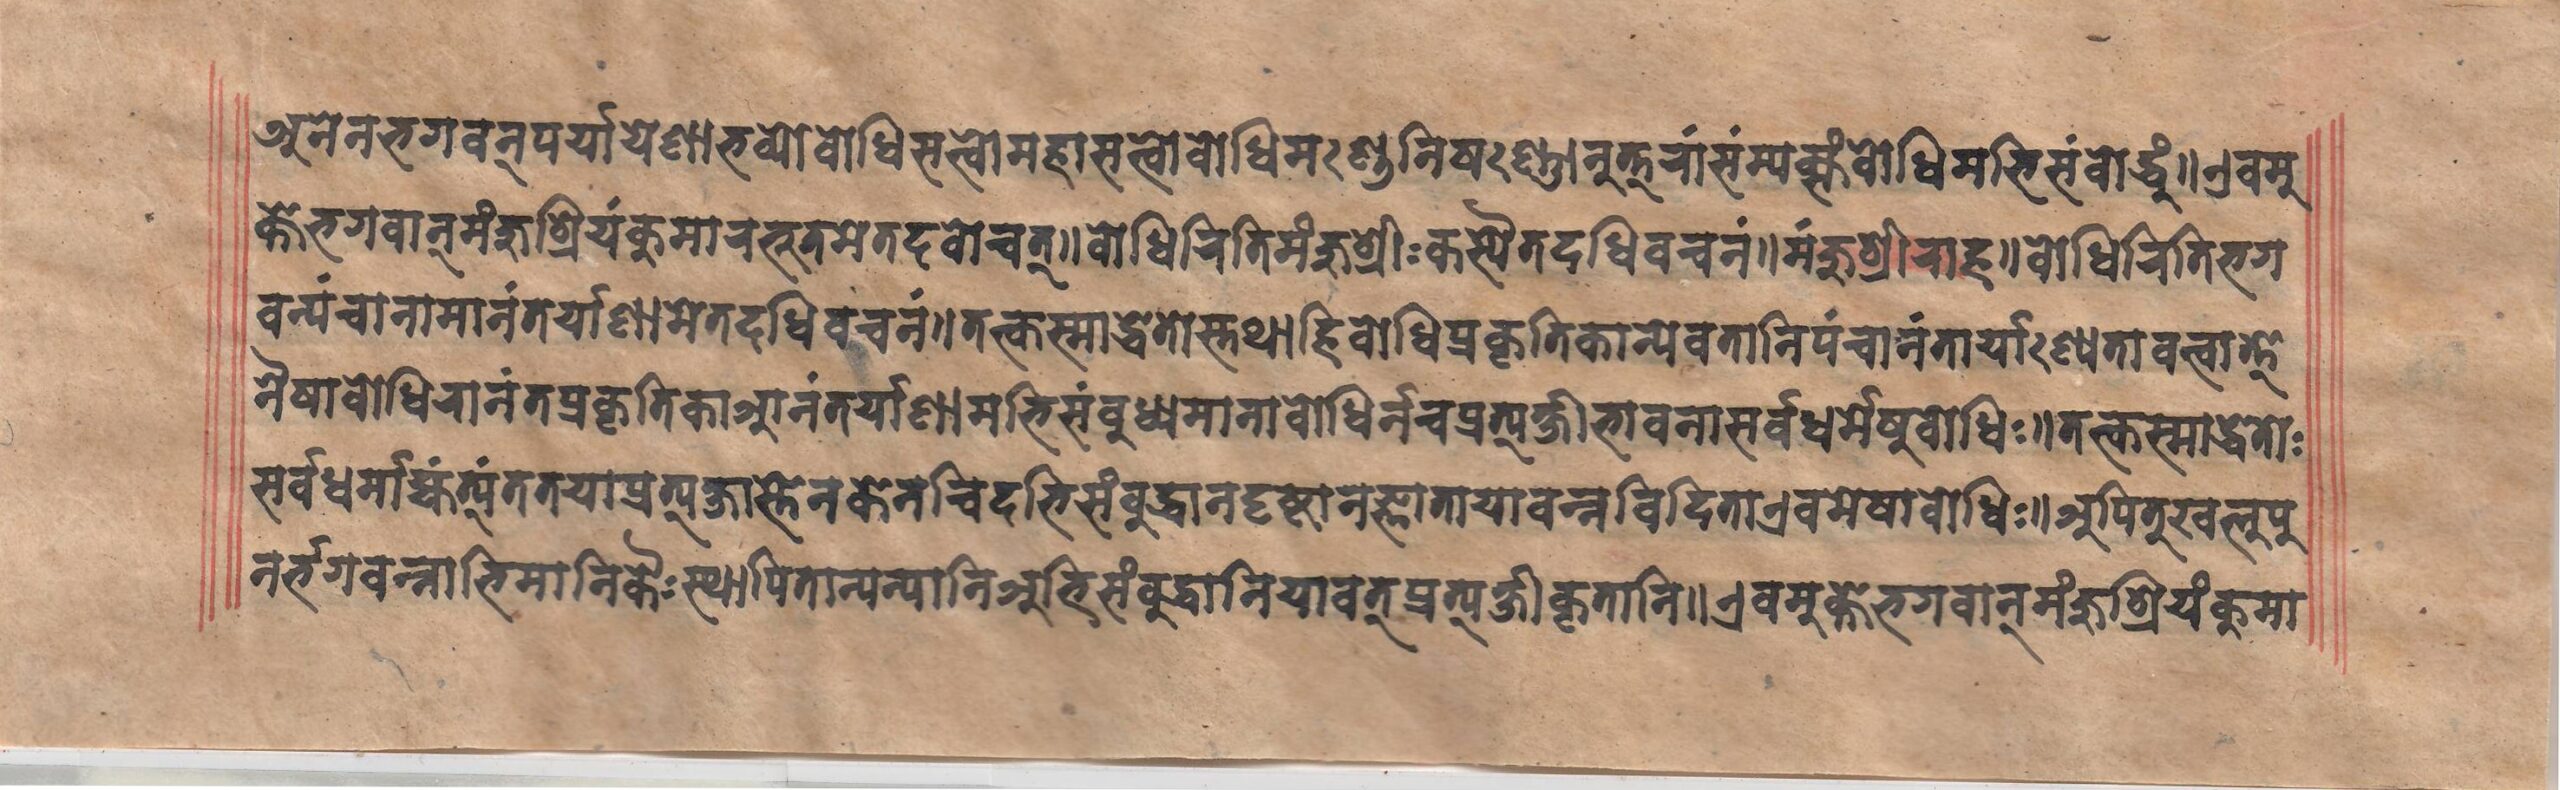 अनेनभगवन्पर्यायेणाभव्योबोधिसत्वोमहासत्वोबोधिमण्डनिषण्णानुत्तरांसंम्यक्संबोधिमभिसंबोद्धुं॥एवमु
क्तेभगवान्मंजुश्रियंकुमारभूतमेतदवोचत्॥बोधिरितिमंजुश्रीःकस्यैतदधिवचनं॥मंजुश्रीराह॥बोधिरितिभग
वन्पंचानामानंतर्याणामेतदधिवचनं॥तत्कस्माद्धेतोस्तथाहिबोधिप्रकृतिकान्येवतानिपंचानंतार्याण्यतावत्वात्ते
नैषाबोधिरानंतप्रकृतिकाआनंतर्याणामभिसंबुध्यमानाबोधिर्नचप्रत्यक्षीभावनासर्वधर्मेषुबोधिः॥तत्कस्माद्धेतोः
सर्वधर्माह्यंत्यंततयाप्रत्यक्षास्तेनकेनचिदभिसंबुद्धानदृष्टानज्ञातायावन्नविदिताएवमेषाबोधिः॥अपितुखलुपु
नर्भगवन्नाभिमानिकैःस्थापितान्यन्यानिअभिसंबुद्धानियावत्प्रत्यक्षीकृतानि॥एवमुक्तेभगवान्मंजुश्रियंकुमा